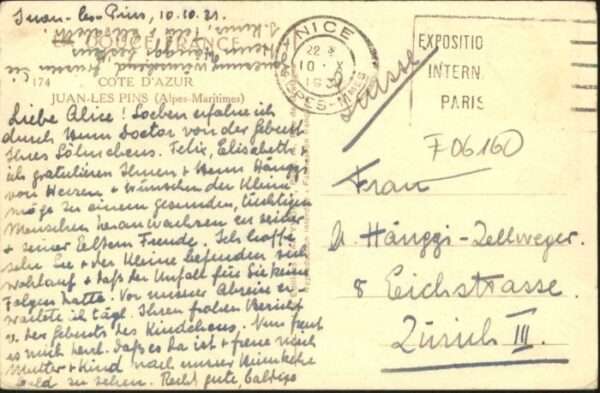 Juan-les-Pins, 10.10.
DOUCE FRANCE
174
COTE D'AZUR
JUAN-LES PINS (Alpes-Maritimes)
Liebe Alice! Soeben erfahre ich
durch Herrn Doctor von der Geburt
Ihres Söhnchens. Felix, Elisabeth +
ich gratulieren Ihnen + Herrn Hänggi
von Herzen + wünschen der Kleine
möge zu einem gesunden, tüchtigen
Menschen heranwachsen zu seiner
+ seiner Eltern Freude. Ich hoffe
sehr Sie + der Kleine befinden sich
wohlauf + daß der Unfall für Sie keine
Folgen hatte. Vor unserer Abreise er-
wartete ich tägl. Ihren frohen Bericht
v. der Geburt des Kindchens. Nun freut
es mich herzl. daß es da ist + freue mich
Mutter + Kind nach unser Heimkehr
bald zu sehen. Recht gute, baldige
NICE
22
10 X
ALPES-MMES
EXPOSITIO
INTERN.
PARIS
Suisse
F06160
Frau
A. Hänggi-Zellweger.
8 Eichstrasse.
Zürich III.